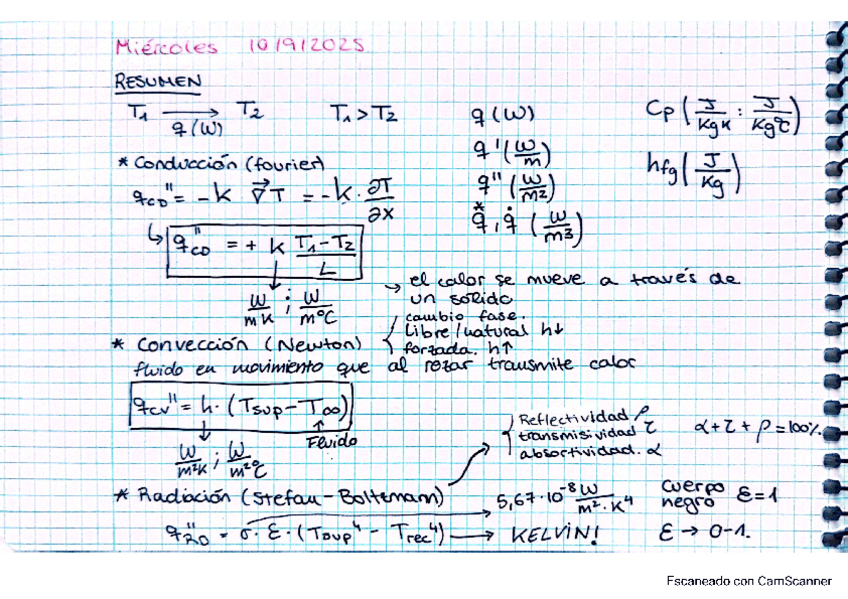 Miércoles 10/9/2025
RESUMEN
T₁ ⟶ T₂ T₁ > T₂
q (W)
q (W)
q' (W/m)
q'' (W/m²)
q̇*, q̇ (W/m³)
Cp (J/Kg K : J/Kg ºC)
hfg (J/Kg)
* Conducción (fourier)
q''CD = -K ∇⃗T = -K · ∂T/∂x
↳ q''CD = + K (T₁ - T₂)/L
W/mK ; W/mºC
→ el calor se mueve a través de
un sólido
* Convección (Newton)
cambio fase.
Libre/natural h↓
forzada. h↑
fluido en movimiento que al rozar transmite calor
q''cv = h · (Tsup - T∞)
Fluido
W/m²K ; W/m²ºC
* Radiación (Stefan-Boltzmann)
Reflectividad ρ
transmisividad τ
absortividad. α
α + τ + ρ = 100%.
5,67·10⁻⁸ W/m²·K⁴
cuerpo
negro ε=1
q''RD = σ · ε · (Tsup⁴ - Trec⁴) → KELVIN!
ε → 0-1.
Escaneado con CamScanner